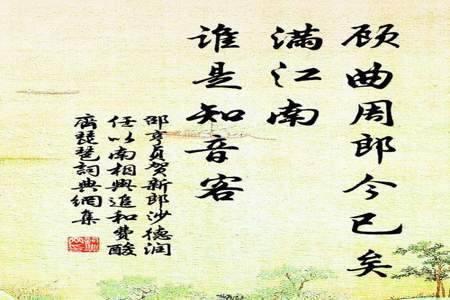 顾曲周郎今已矣
满江南
谁是知音客
邵亨贞贺新郎沙德润
任以南相与追和费酸
斋琵琶词典网集